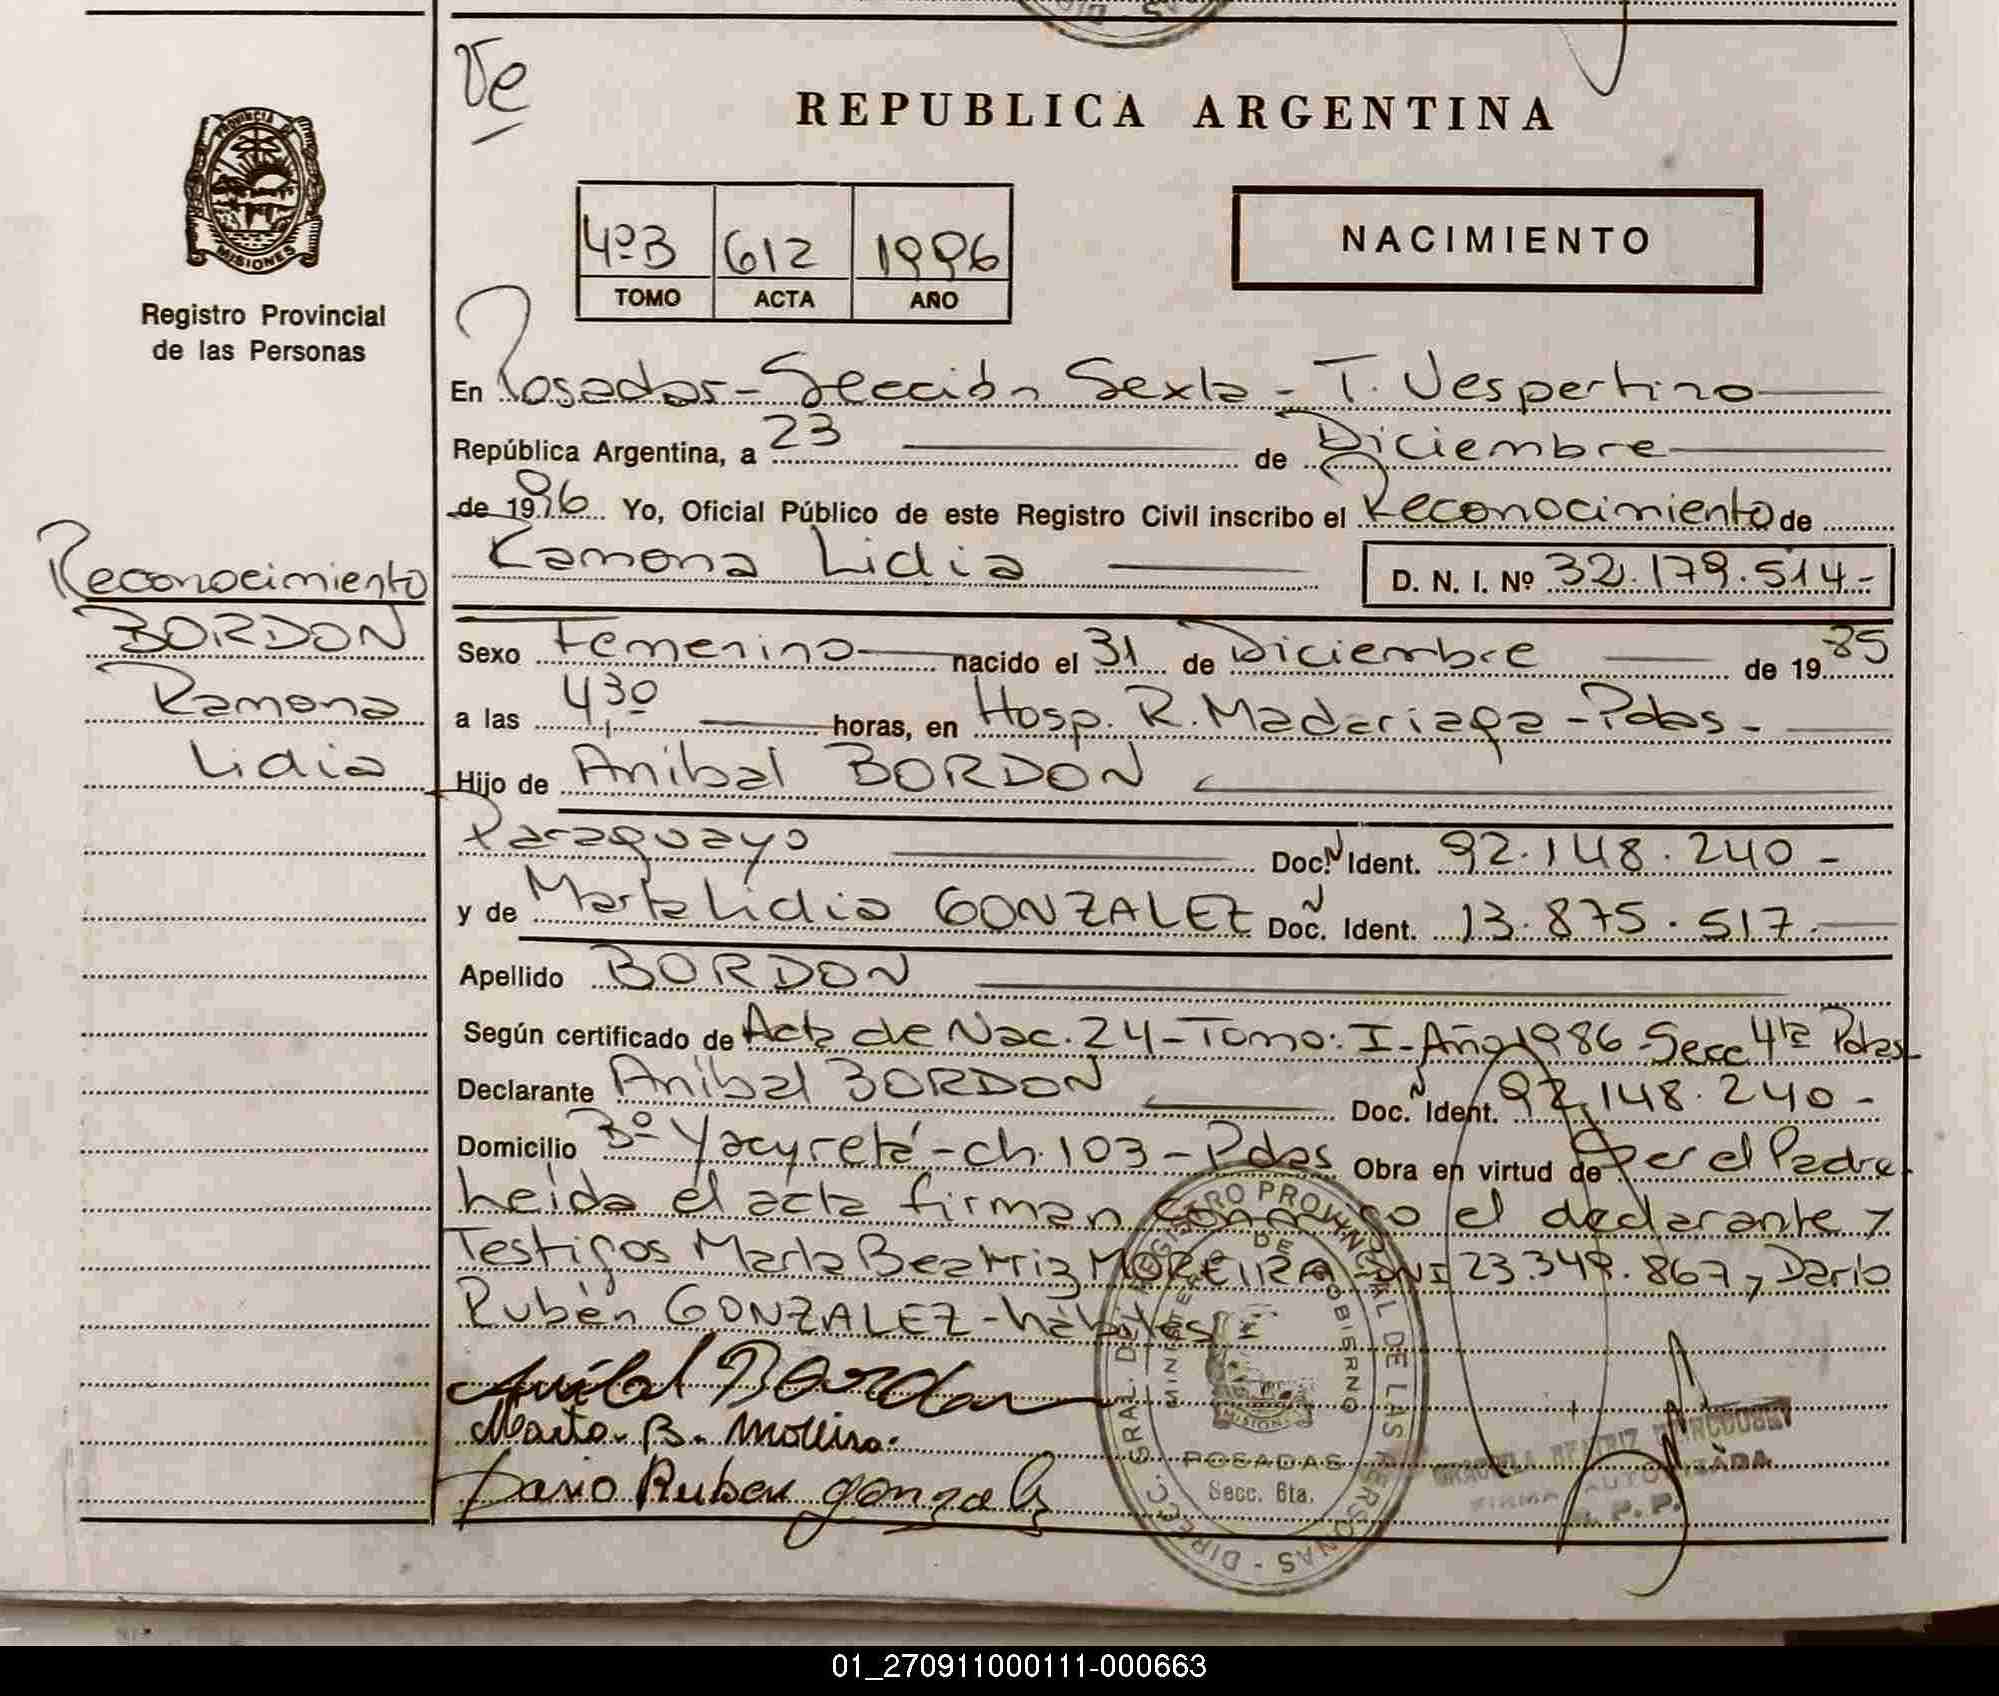 Ve
REPUBLICA ARGENTINA
PROVINCIA DE
MISIONES
Registro Provincial
de las Personas
4ºB 612 1996
TOMO ACTA AÑO
NACIMIENTO
En Posadas - Sección Sexta - T. Vespertino
República Argentina, a 23 de Diciembre
de 1996 Yo, Oficial Público de este Registro Civil inscribo el Reconocimiento de
Ramona Lidia D. N. I. Nº 32.179.514.-
Reconocimiento
BORDON
Ramona
Lidia
Sexo Femenino nacido el 31 de Diciembre de 1985
a las 4,30 horas, en Hosp. R. Madariaga - Pdas -
Hijo de Anibal BORDON
Paraguayo Doc. N Ident. 92.148.240 -
y de Marta Lidia GONZALEZ Doc. N Ident. 13.875.517.
Apellido BORDON
Según certificado de Acta de Nac. 24 - Tomo: I - Año 1986 Secc 4ta Pdas
Declarante Anibal BORDON Doc. N Ident. 92.148.240 -
Domicilio Bº Yacyretá - ch. 103 - Pdas Obra en virtud de Ser el Padre
Leida el acta firman conmigo el declarante y
Testigos Marta Beatriz MOREIRA DNI 23.349.867 y Dario
Rubén GONZALEZ - hábiles
Anibal Bordon
Marta B. Moreira
Dario Ruben gonzalez
DIREC. GRAL. DEL REGISTRO PROVINCIAL DE LAS PERSONAS
MINISTERIO DE GOBIERNO
MISIONES
POSADAS
Secc. 6ta.
GRACIELA BEATRIZ
FIRMA AUTORIZADA
R. P. P.
01_270911000111-000663